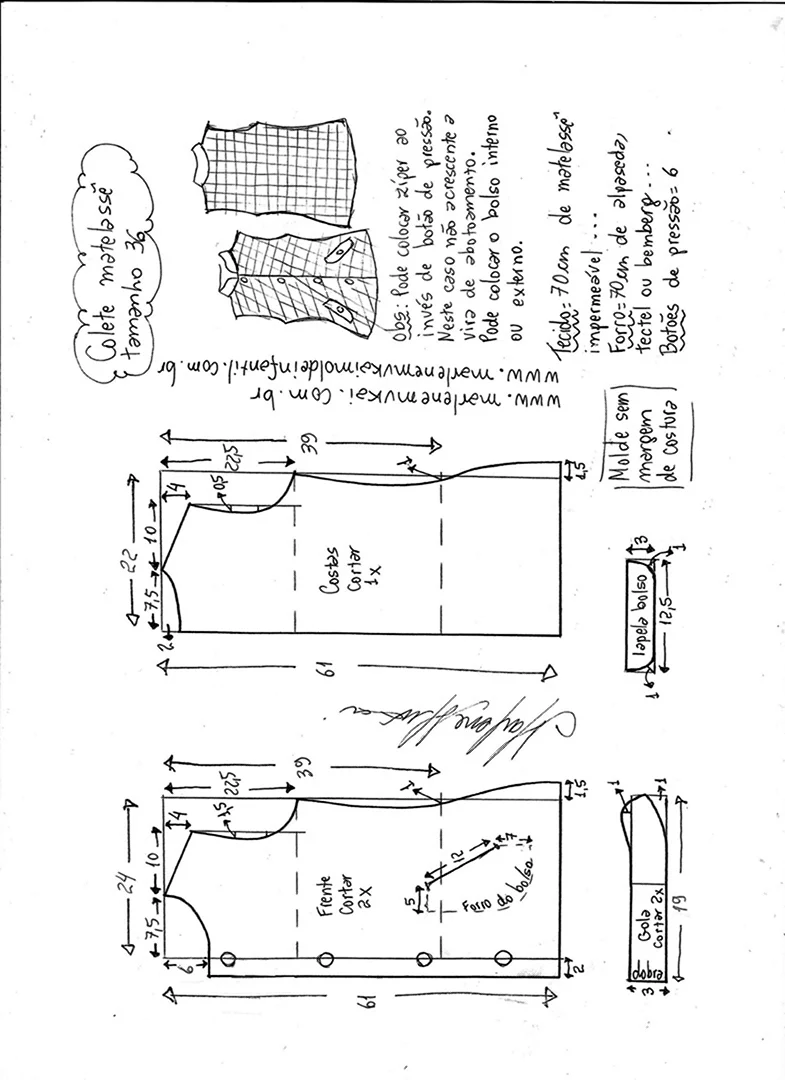 Colete matelassê
tamanho 36
Obs: Pode colocar zíper ao
invés de botão de pressão.
Neste caso não acrescente a
vira de abotoamento.
Pode colocar o bolso interno
ou externo.
Tecido= 70cm de matelassê
impermeável ...
Forro=70cm de alpaseda,
tectel ou bemberg...
Botões de pressão= 6
www.marlenemukai.com.br
www.marlenemukaimoldeinfantil.com.br
Molde sem
margem
de costura
24
7,5
10
4
22,5
39
1,5
6
61
1
1,5
2
Frente
Cortar
2x
12
5
7
Forro do bolso
22
7,5
10
4
22,5
39
0,5
2
61
1
1,5
Costas
Cortar
1x
dobra
Gola
Cortar 2x
3
19
1
1
lapela bolso
3
12,5
1
1